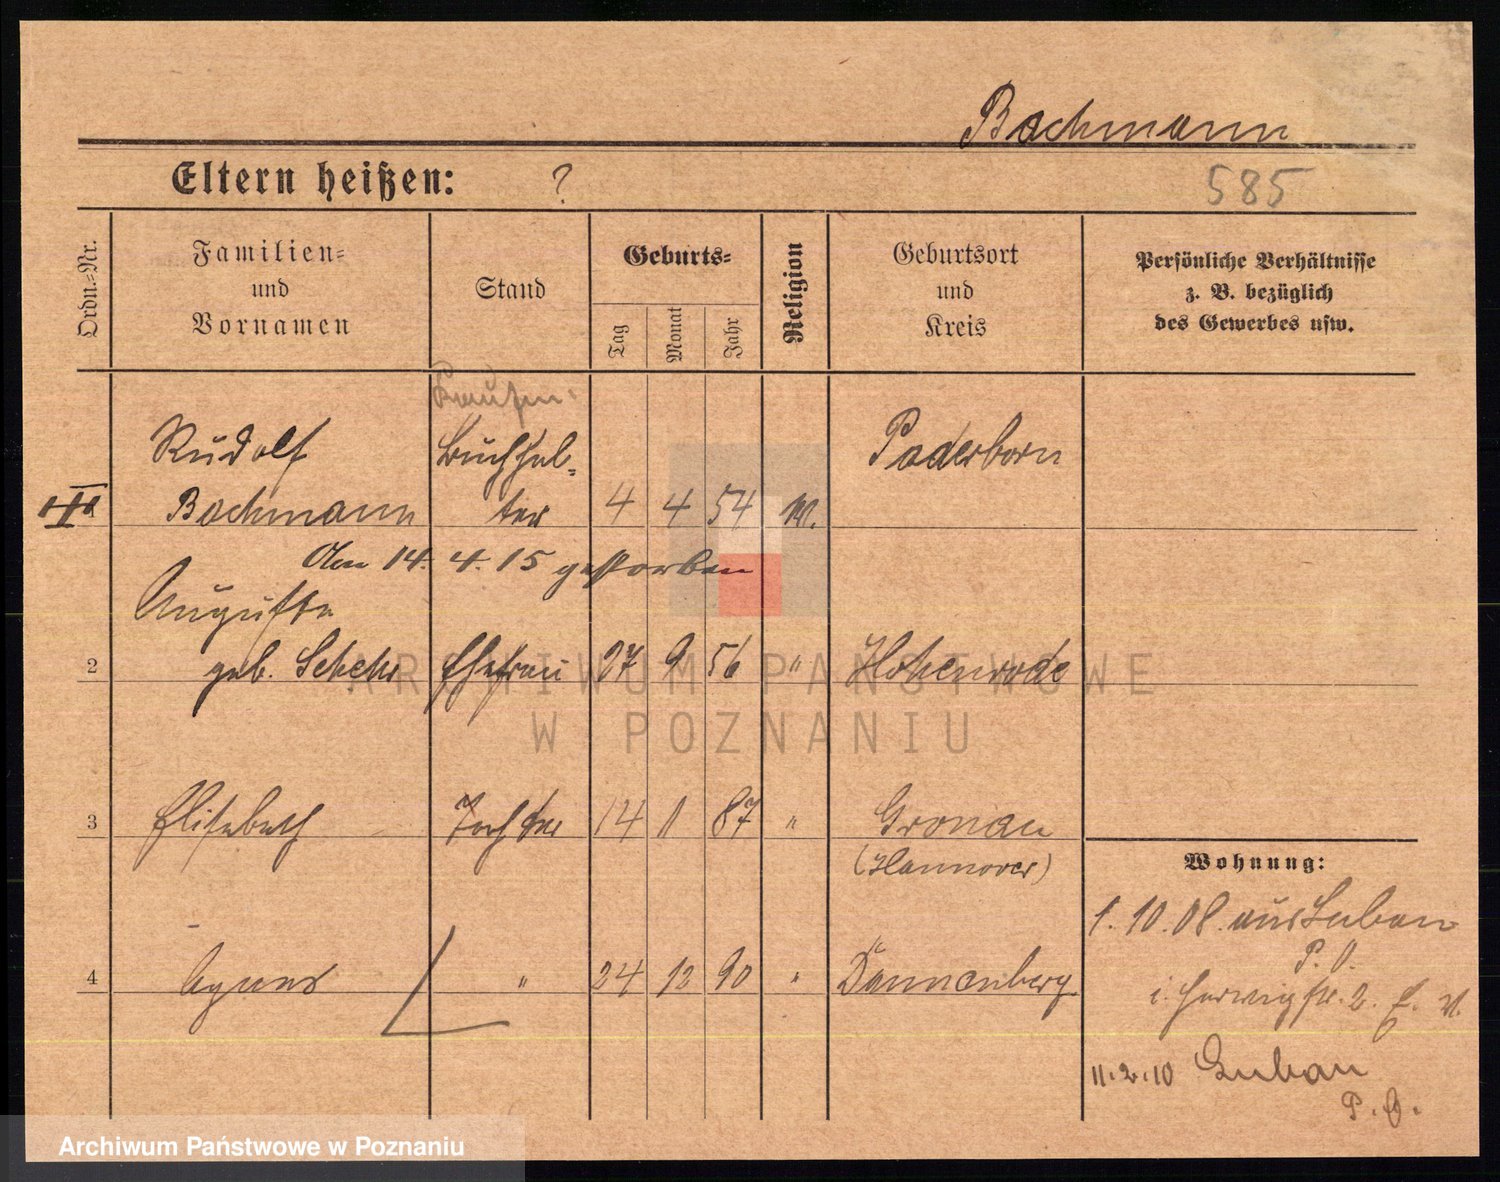 Bachmann
Eltern heißen: ?
585
Ordn.-Nr.
Familien-
und
Vornamen
Stand
Geburts-
Tag
Monat
Jahr
Religion
Geburtsort
und
Kreis
Persönliche Verhältnisse
z. B. bezüglich
des Gewerbes usw.
Rudolf Buchhal- Paderborn
1 Bachmann ter 4 4 54
Am 14. 4. 15 gestorben
Auguste
2 geb. Ehefrau 27 9 56 " Hohenrode
3 Elisabeth Tochter 14 11 87 " Gronau
(Hannover)
Wohnung:
1. 10. 08. aus Luban
P. O.
4 Agnes " 24 12 90 " Dannenberg
11.2.10 Luban
P. O.
ARCHIWUM PAŃSTWOWE
W POZNANIU
Archiwum Państwowe w Poznaniu